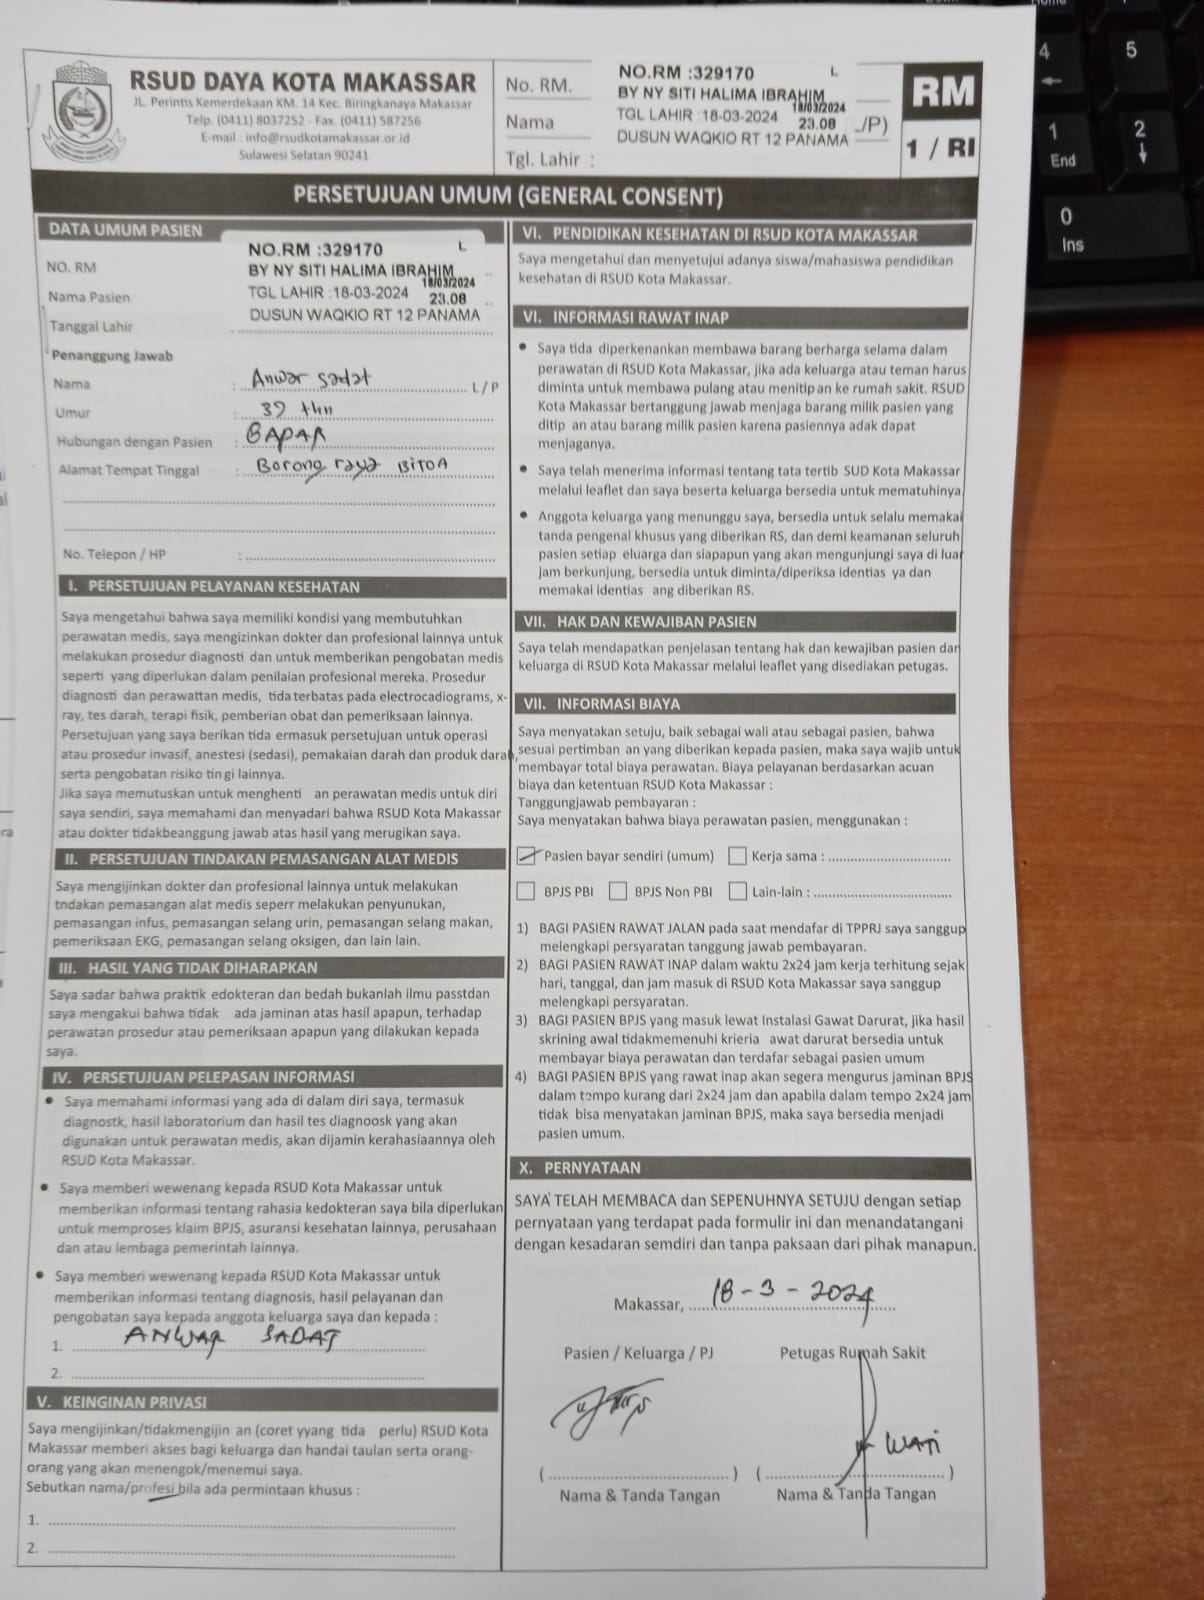 RSUD DAYA KOTA MAKASSAR
JL. Perintis Kemerdekaan KM. 14 Kec. Biringkanaya Makassar
Telp. (0411) 8037252 - Fax. (0411) 587256
E-mail : info@rsudkotamakassar.or.id
Sulawesi Selatan 90241
No. RM.
Nama
Tgl. Lahir :
NO.RM :329170 L
BY NY SITI HALIMA IBRAHIM
18/03/2024
TGL LAHIR :18-03-2024 23.08
DUSUN WAQKIO RT 12 PANAMA
/P)
RM
1 / RI
PERSETUJUAN UMUM (GENERAL CONSENT)
DATA UMUM PASIEN
NO. RM
Nama Pasien
Tanggal Lahir
NO.RM :329170 L
BY NY SITI HALIMA IBRAHIM
18/03/2024
TGL LAHIR :18-03-2024 23.08
DUSUN WAQKIO RT 12 PANAMA
Penanggung Jawab
Nama : Anwar Sadat L / P
Umur : 39 thn
Hubungan dengan Pasien : BAPAK
Alamat Tempat Tinggal : Borong raya BITOA
No. Telepon / HP :
I. PERSETUJUAN PELAYANAN KESEHATAN
Saya mengetahui bahwa saya memiliki kondisi yang membutuhkan
perawatan medis, saya mengizinkan dokter dan profesional lainnya untuk
melakukan prosedur diagnosti dan untuk memberikan pengobatan medis
seperti yang diperlukan dalam penilaian profesional mereka. Prosedur
diagnosti dan perawattan medis, tida terbatas pada electrocadiograms, x-
ray, tes darah, terapi fisik, pemberian obat dan pemeriksaan lainnya.
Persetujuan yang saya berikan tida ermasuk persetujuan untuk operasi
atau prosedur invasif, anestesi (sedasi), pemakaian darah dan produk darah,
serta pengobatan risiko tin gi lainnya.
Jika saya memutuskan untuk menghenti an perawatan medis untuk diri
saya sendiri, saya memahami dan menyadari bahwa RSUD Kota Makassar
atau dokter tidakbeanggung jawab atas hasil yang merugikan saya.
II. PERSETUJUAN TINDAKAN PEMASANGAN ALAT MEDIS
Saya mengijinkan dokter dan profesional lainnya untuk melakukan
tndakan pemasangan alat medis seperr melakukan penyunukan,
pemasangan infus, pemasangan selang urin, pemasangan selang makan,
pemeriksaan EKG, pemasangan selang oksigen, dan lain lain.
III. HASIL YANG TIDAK DIHARAPKAN
Saya sadar bahwa praktik edokteran dan bedah bukanlah ilmu passtdan
saya mengakui bahwa tidak ada jaminan atas hasil apapun, terhadap
perawatan prosedur atau pemeriksaan apapun yang dilakukan kepada
saya.
IV. PERSETUJUAN PELEPASAN INFORMASI
• Saya memahami informasi yang ada di dalam diri saya, termasuk
diagnostk, hasil laboratorium dan hasil tes diagnoosk yang akan
digunakan untuk perawatan medis, akan dijamin kerahasiaannya oleh
RSUD Kota Makassar.
• Saya memberi wewenang kepada RSUD Kota Makassar untuk
memberikan informasi tentang rahasia kedokteran saya bila diperlukan
untuk memproses klaim BPJS, asuransi kesehatan lainnya, perusahaan
dan atau lembaga pemerintah lainnya.
• Saya memberi wewenang kepada RSUD Kota Makassar untuk
memberikan informasi tentang diagnosis, hasil pelayanan dan
pengobatan saya kepada anggota keluarga saya dan kepada :
1. ANWAR SADAT
2.
V. KEINGINAN PRIVASI
Saya mengijinkan/tidakmengijin an (coret yyang tida perlu) RSUD Kota
Makassar memberi akses bagi keluarga dan handai taulan serta orang-
orang yang akan menengok/menemui saya.
Sebutkan nama/profesi bila ada permintaan khusus :
1.
2.
VI. PENDIDIKAN KESEHATAN DI RSUD KOTA MAKASSAR
Saya mengetahui dan menyetujui adanya siswa/mahasiswa pendidikan
kesehatan di RSUD Kota Makassar.
VI. INFORMASI RAWAT INAP
• Saya tida diperkenankan membawa barang berharga selama dalam
perawatan di RSUD Kota Makassar, jika ada keluarga atau teman harus
diminta untuk membawa pulang atau menitip an ke rumah sakit. RSUD
Kota Makassar bertanggung jawab menjaga barang milik pasien yang
ditip an atau barang milik pasien karena pasiennya adak dapat
menjaganya.
• Saya telah menerima informasi tentang tata tertib SUD Kota Makassar
melalui leaflet dan saya beserta keluarga bersedia untuk mematuhinya
• Anggota keluarga yang menunggu saya, bersedia untuk selalu memakai
tanda pengenal khusus yang diberikan RS, dan demi keamanan seluruh
pasien setiap eluarga dan siapapun yang akan mengunjungi saya di luar
jam berkunjung, bersedia untuk diminta/diperiksa identias ya dan
memakai identias ang diberikan RS.
VII. HAK DAN KEWAJIBAN PASIEN
Saya telah mendapatkan penjelasan tentang hak dan kewajiban pasien dan
keluarga di RSUD Kota Makassar melalui leaflet yang disediakan petugas.
VII. INFORMASI BIAYA
Saya menyatakan setuju, baik sebagai wali atau sebagai pasien, bahwa
sesuai pertimban an yang diberikan kepada pasien, maka saya wajib untuk
membayar total biaya perawatan. Biaya pelayanan berdasarkan acuan
biaya dan ketentuan RSUD Kota Makassar :
Tanggungjawab pembayaran :
Saya menyatakan bahwa biaya perawatan pasien, menggunakan :
Pasien bayar sendiri (umum) Kerja sama :
BPJS PBI BPJS Non PBI Lain-lain :
1) BAGI PASIEN RAWAT JALAN pada saat mendafar di TPPRJ saya sanggup
melengkapi persyaratan tanggung jawab pembayaran.
2) BAGI PASIEN RAWAT INAP dalam waktu 2x24 jam kerja terhitung sejak
hari, tanggal, dan jam masuk di RSUD Kota Makassar saya sanggup
melengkapi persyaratan.
3) BAGI PASIEN BPJS yang masuk lewat Instalasi Gawat Darurat, jika hasil
skrining awal tidakmemenuhi krieria awat darurat bersedia untuk
membayar biaya perawatan dan terdafar sebagai pasien umum
4) BAGI PASIEN BPJS yang rawat inap akan segera mengurus jaminan BPJS
dalam tempo kurang dari 2x24 jam dan apabila dalam tempo 2x24 jam
tidak bisa menyatakan jaminan BPJS, maka saya bersedia menjadi
pasien umum.
X. PERNYATAAN
SAYA TELAH MEMBACA dan SEPENUHNYA SETUJU dengan setiap
pernyataan yang terdapat pada formulir ini dan menandatangani
dengan kesadaran semdiri dan tanpa paksaan dari pihak manapun.
Makassar, 18-3-2024
Pasien / Keluarga / PJ Petugas Rumah Sakit
WATI
Nama & Tanda Tangan Nama & Tanda Tangan
4
5
1
End
2
0
Ins